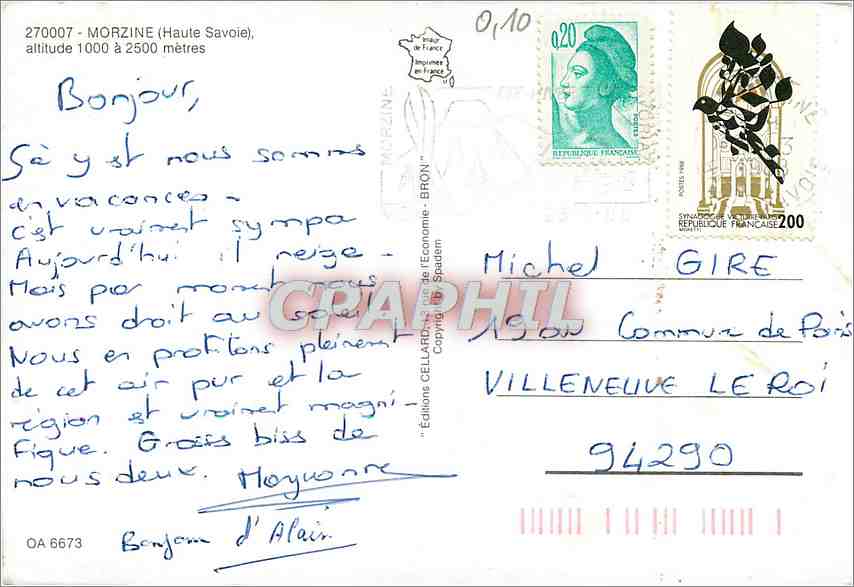 270007 - MORZINE (Haute Savoie),
altitude 1000 à 2500 mètres
Bonjour,
Sà y est nous sommes
en vacances -
c'est vraiment sympa
Aujourd'hui il neige -
Mais par moment nous
avons droit au soleil
Nous en profitons pleinement
de cet air pur et la
région est vraiment magni-
fique. Gross biss de
nous deux.
Bonjour d'Alain
OA 6673
Image
de France
Imprimée
en France
" Éditions CELLARD, 13 rue de l'Économie - BRON"
Copyright by Spadem
CPAPHIL
0,10
0,20
POSTES
REPUBLIQUE FRANÇAISE
MORZINE
POSTES 1988
SYNAGOGUE VICTOIRE PARIS
REPUBLIQUE FRANÇAISE 2,00
MORETTI
Michel GIRE
Commune de Paris
VILLENEUVE LE ROI
94290